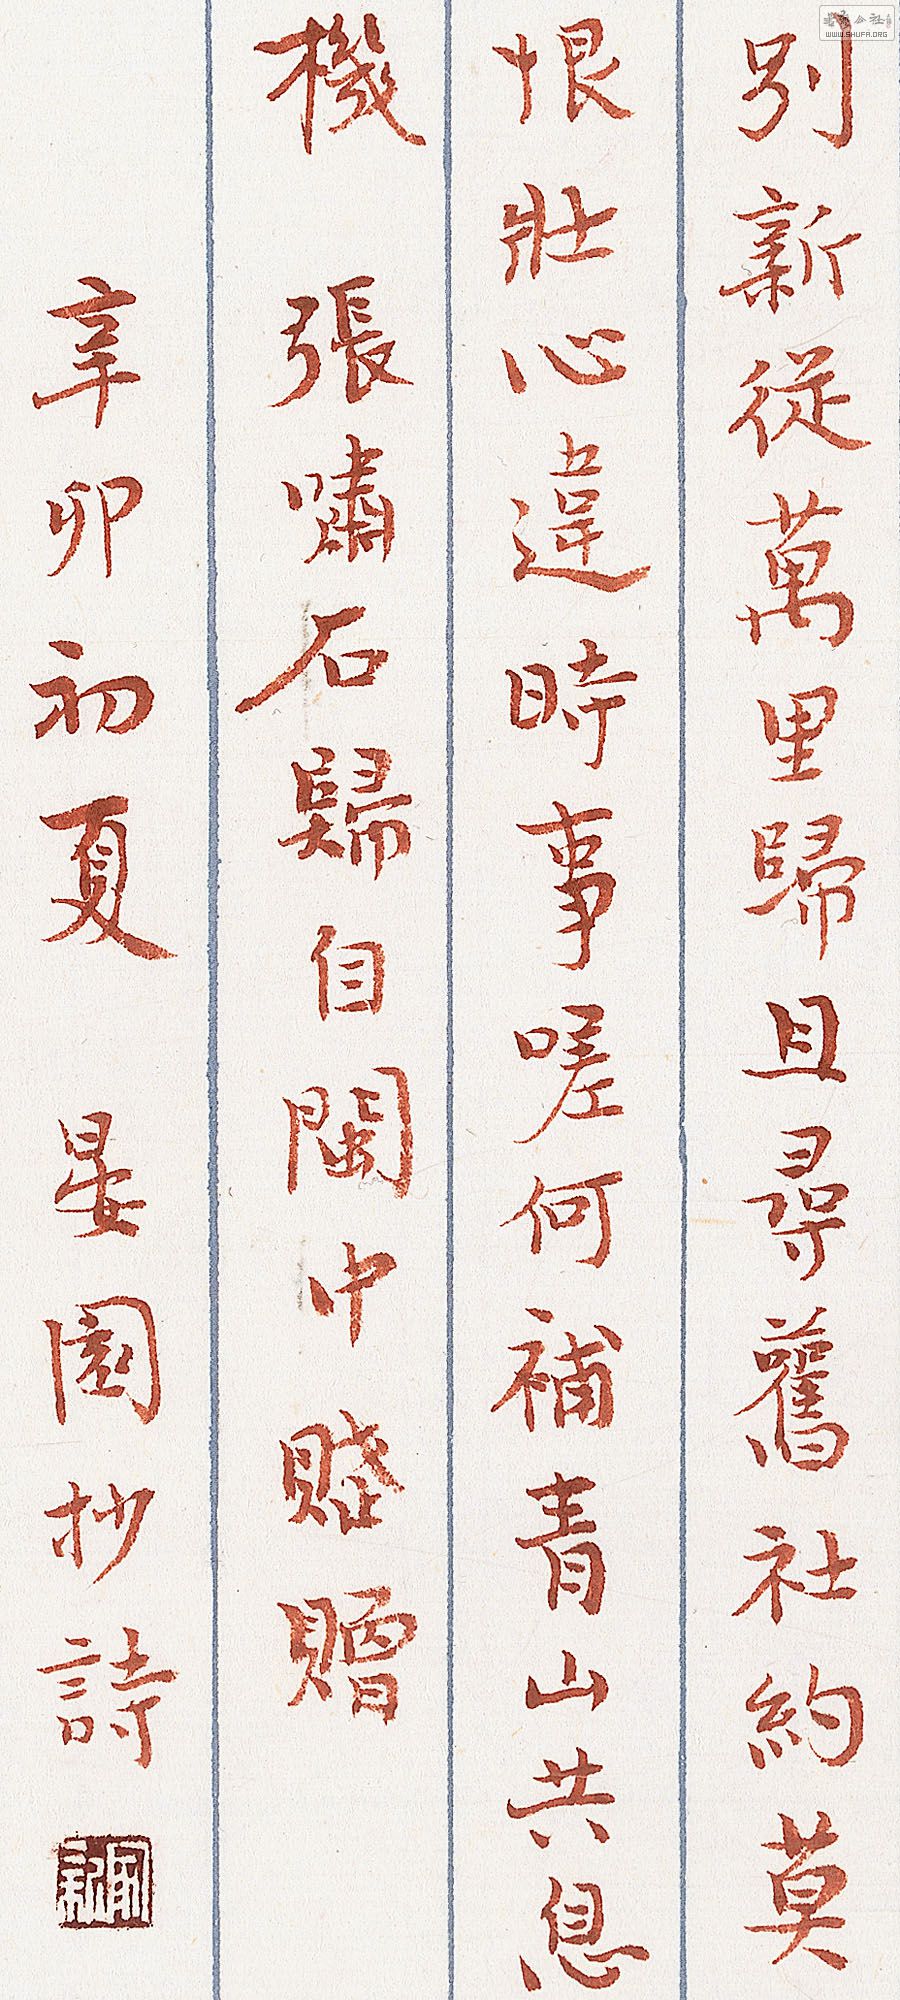 別新從萬里歸且尋舊社約莫
恨壯心違時事嗟何補青山共息
機 張嘯石歸自閩中賤贈
辛卯初夏 晏園抄詩
WWW.SHUFA.ORG